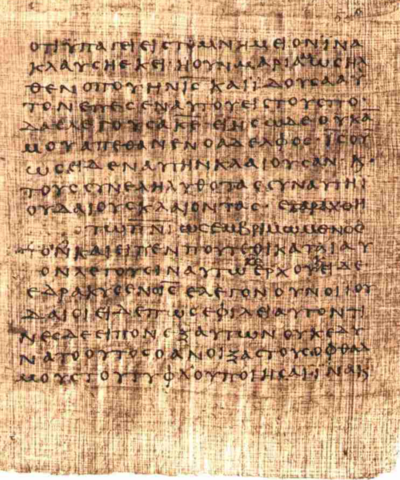 ΟΤΙΥΠΑΓΕΙΕΙϹΤΟΜΝΗΜΕΙΟΝΙΝΑ
ΚΛΑΥϹΗΕΚΕΙ·ΗΟΥΝΜΑΡΙΑΜΩϹΗΛ
ΘΕΝΟΠΟΥΗΝΙ̅Ϲ̅ΚΑΙΙΔΟΥϹΑΑΥ
ΤΟΝΕΠΕϹΕΝΑΥΤΟΥΕΙϹΤΟΥϹΠΟ
ΔΑϹΛΕΓΟΥϹΑΚ̅Ε̅ΕΙΗϹΩΔΕΟΥΚΑ
ΜΟΥΑΠΕΘΑΝΕΝΟΑΔΕΛΦΟϹΙ̅Ϲ̅ΟΥ
ΩϹΕΙΔΕΝΑΥΤΗΝΚΛΑΙΟΥϹΑΝΚ
ΤΟΥϹϹΥΝΕΛΗΛΥΘΟΤΑϹϹΥΝΑΥΤΗΙ
ΟΥΔΑΙΟΥϹΚΛΑΙΟΝΤΑϹ·ΕΤΑΡΑΧΘΗ
ΤΩΠ̅Ν̅Ι̅ΩϹΕΜΒΡΙΜΩΜΕΝΟϹ
ΚΑΙΕΙΠΕΝΠΟΥΤΕΘΕΙΚΑΤΑΙΑΥ
ΟΝΛΕΓΟΥϹΙΝΑΥΤΩΕΡΧΟΥΚΕΙΔΕ
ΕΛΕΓΟΝΟΥΝΟΙΙΟΥ
ΔΑΙΟΙΕΙΔΕΠΩϹΕΦΙΛΕΙΑΥΤΟΝΤΙ
ΝΕϹΔΕΕΙΠΟΝΕΞΑΥΤΩΝΟΥΚΕΔΥ
ΝΑΤΟΟΥΤΟϹΟΑΝΟΙΞΑϹΤΟΥϹΟΦΘΑΛ
ΜΟΥϹΤΟΥΤΥΦΛΟΥΠΟΙΗϹΑΙΙΝΑΚ